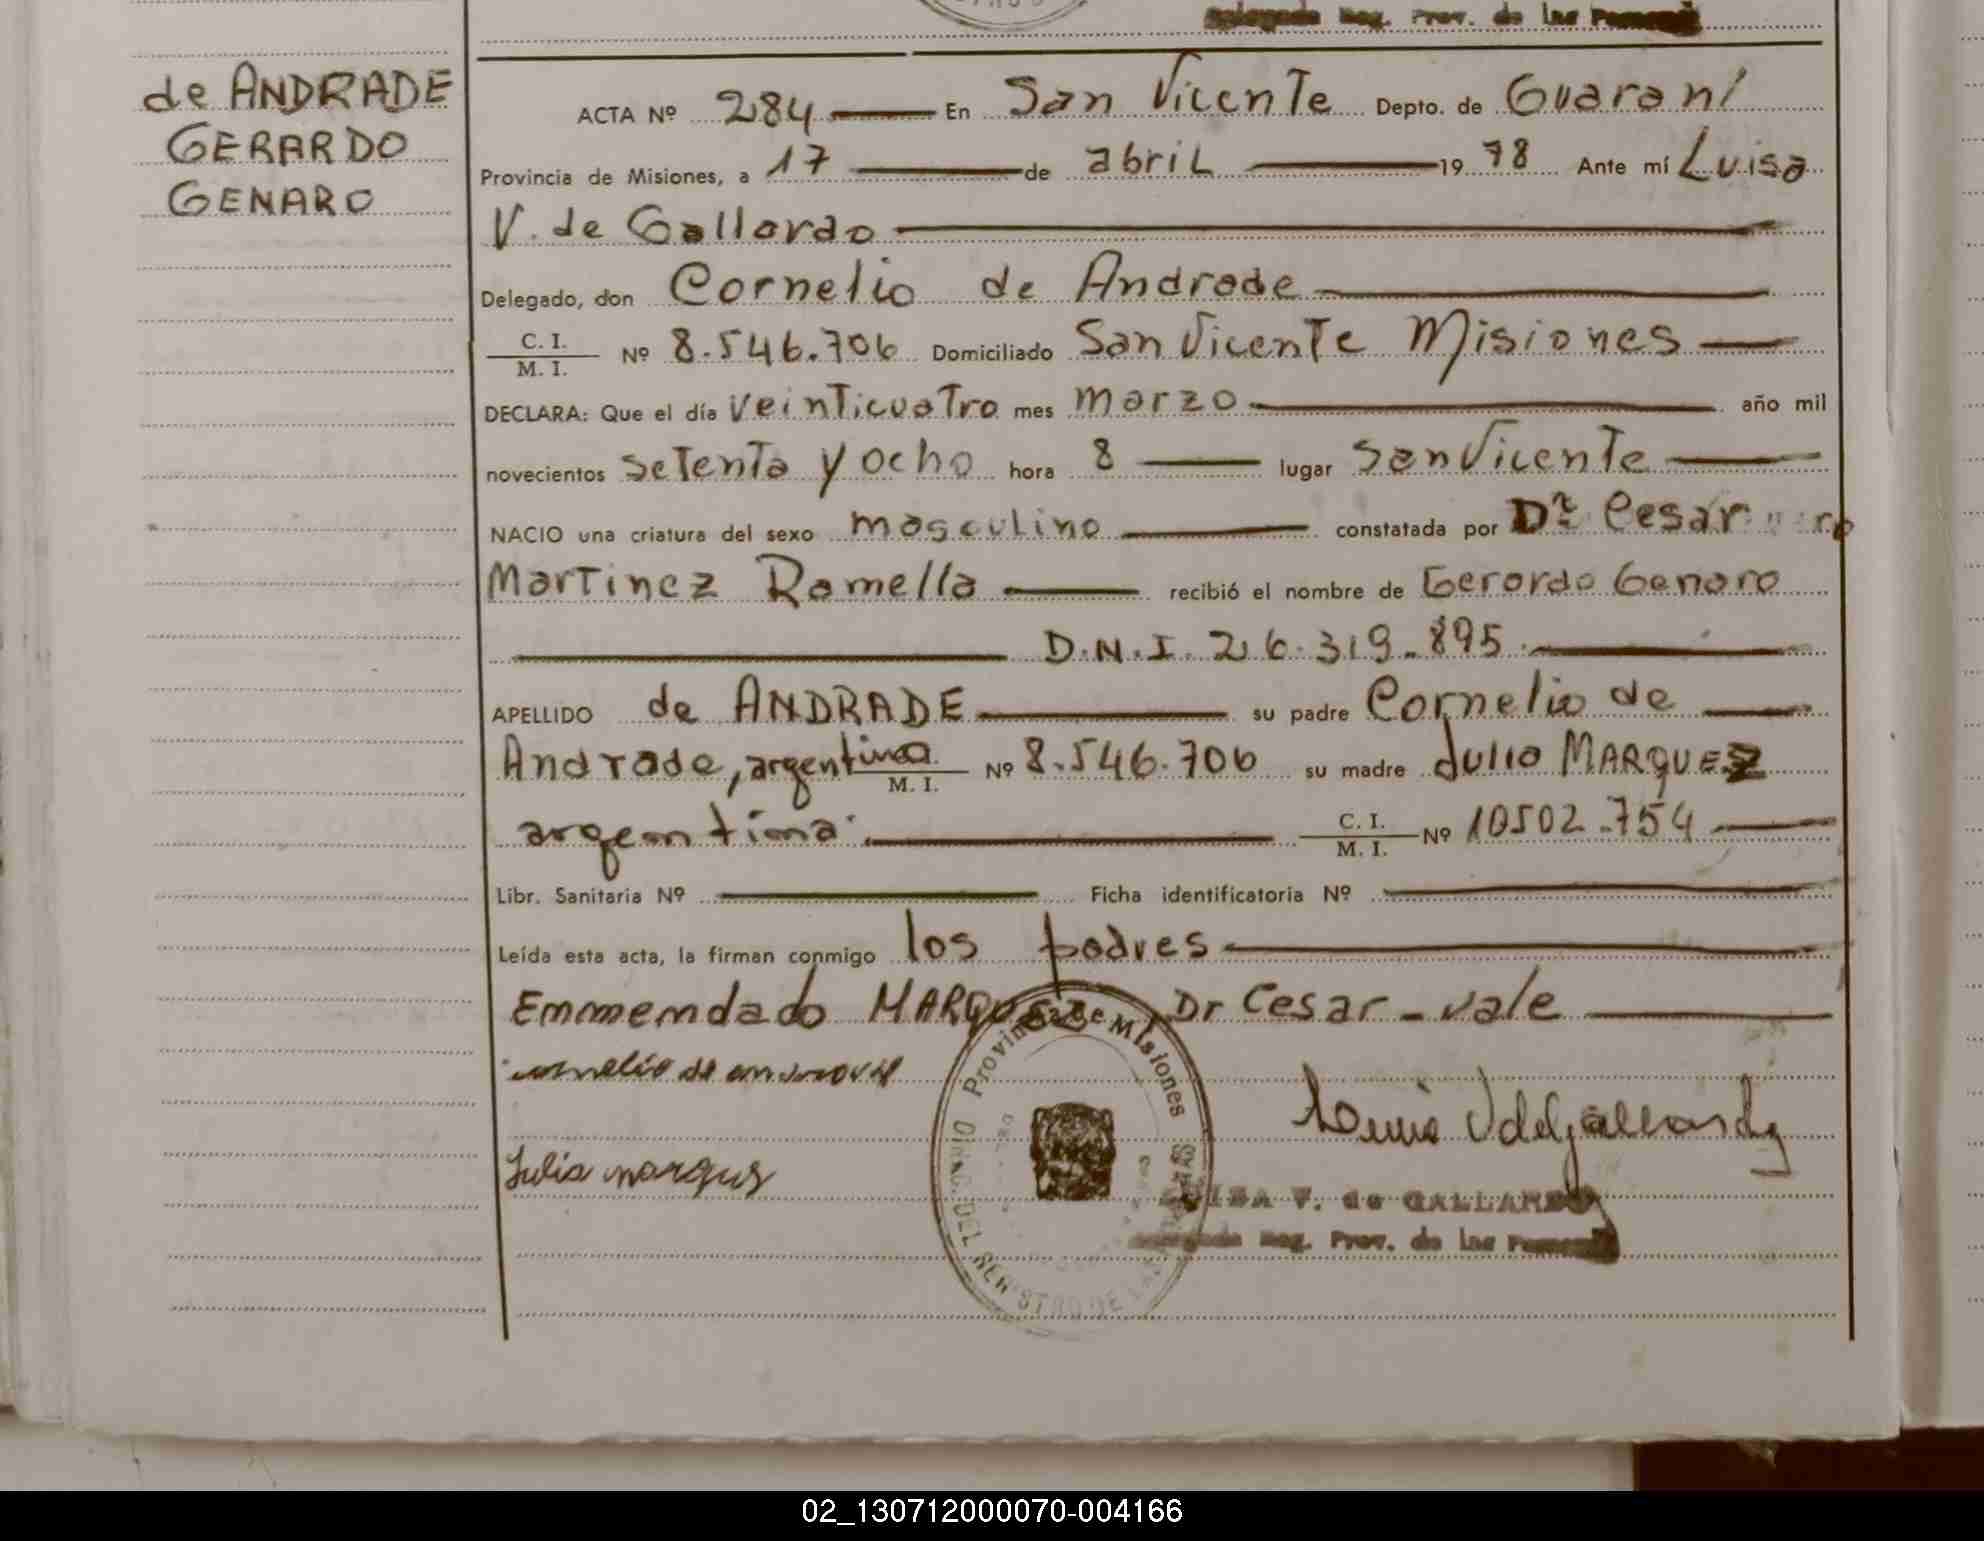 Reg. Prov. de las
de ANDRADE
GERARDO
GENARO
ACTA Nº 284 En San Vicente Depto. de Guaraní
Provincia de Misiones, a 17 de abril 1978 Ante mí Luisa
V. de Gallardo
Delegado, don Cornelio de Andrade
C. I.
M. I. Nº 8.546.706 Domiciliado San Vicente Misiones
DECLARA: Que el día veinticuatro mes marzo año mil
novecientos setenta y ocho hora 8 lugar San Vicente
NACIO una criatura del sexo masculino constatada por Dr. Cesar
Martinez Ramella recibió el nombre de Gerardo Genaro
D.N.I. 26.319.895
APELLIDO de ANDRADE su padre Cornelio de
Andrade, argentino M. I. Nº 8.546.706 su madre Julia MARQUEZ
argentina. C. I.
M. I. Nº 10502.754
Libr. Sanitaria Nº Ficha identificatoria Nº
Leída esta acta, la firman conmigo los padres
Emmendado MARQUEZ Dr Cesar - vale
Provincia de Misiones
DIREC. DEL REGISTRO DE LAS
cornelio de
Julia marques
LUISA V. de GALLARDO
Reg. Prov. de las
02_130712000070-004166